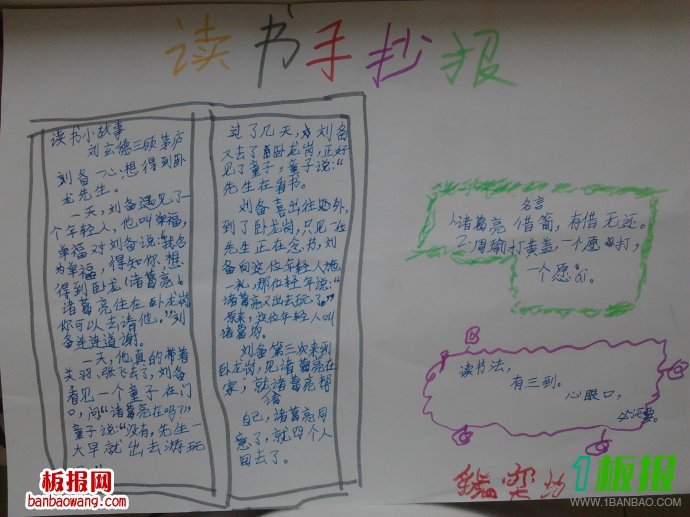 读书手抄报
读书小故事
刘玄德三顾茅庐
刘备一心想得到卧
龙先生。
一天,刘备遇见了一
个年轻人,他叫单福,
单福对刘备说:"我名
为单福,得知你想
得到卧龙(诸葛亮)
诸葛亮住在卧龙岗
你可以去请他。"刘
备连连道谢。
一天,他真的带着
关羽、张飞去了,刘备
看见一个童子在门
口,问"诸葛亮在吗?"
童子说:"没有,先生一
大早就出去游玩
过了几天,刘备
又去了卧龙岗,正好
见了童子,童子说:"
先生在看书。
刘备喜出往外,
到了卧龙岗,只见一位
先生正在念书,刘
备向这位年轻人施
一礼,那位年轻说:"
诸葛亮又出去玩了。"
原来,这位年轻人叫
诸葛均。
刘备第三次来到
卧龙岗,见诸葛亮在
家,诸葛亮帮
自己,诸葛亮同
意了,就四个人
回去了。
名言
1、诸葛亮借箭,有借无还。
2、周瑜打黄盖,一个愿打,
一个愿ái。
读书法,
有三到。
心眼口,
板报网
banbaowang.com
1板报
WWW.1BANBAO.COM